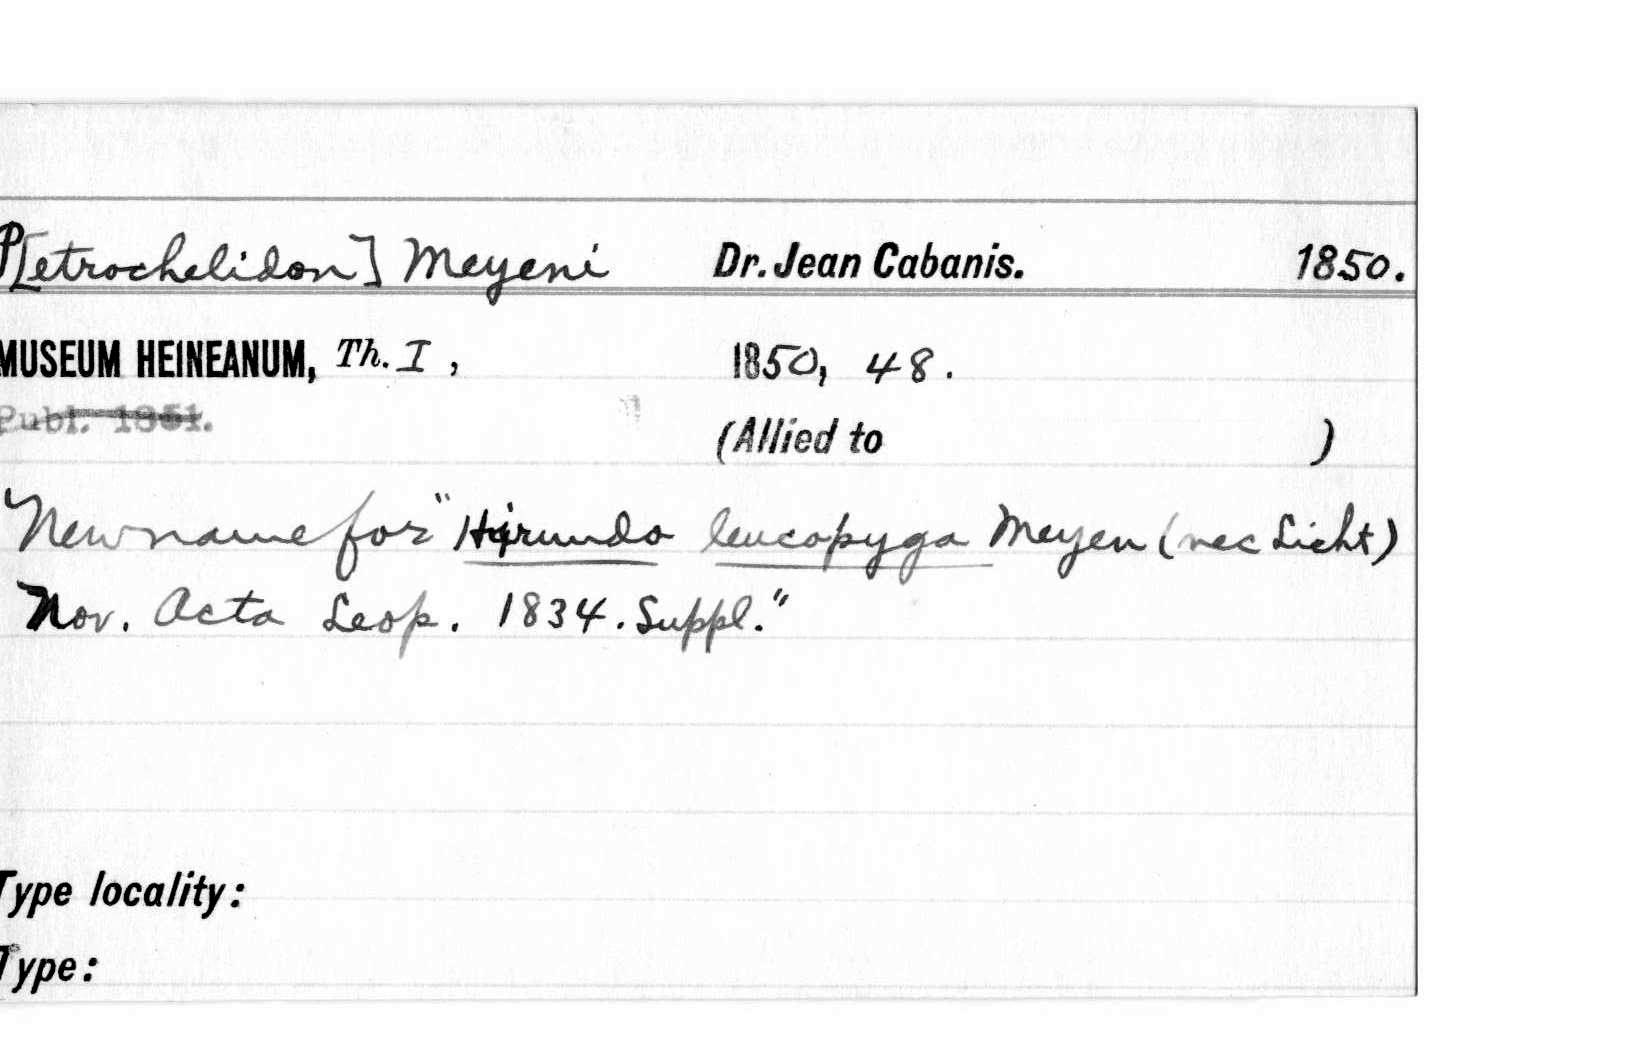 P[etrochelidon] Meyeni Dr. Jean Cabanis. 1850.
MUSEUM HEINEANUM, Th. I, 1850, 48.
Publ. 1851.
(Allied to )
"New name for" Hirundo leucopyga Meyen (nec Licht)
Nov. Acta Leop. 1834. Suppl."
Type locality:
Type: